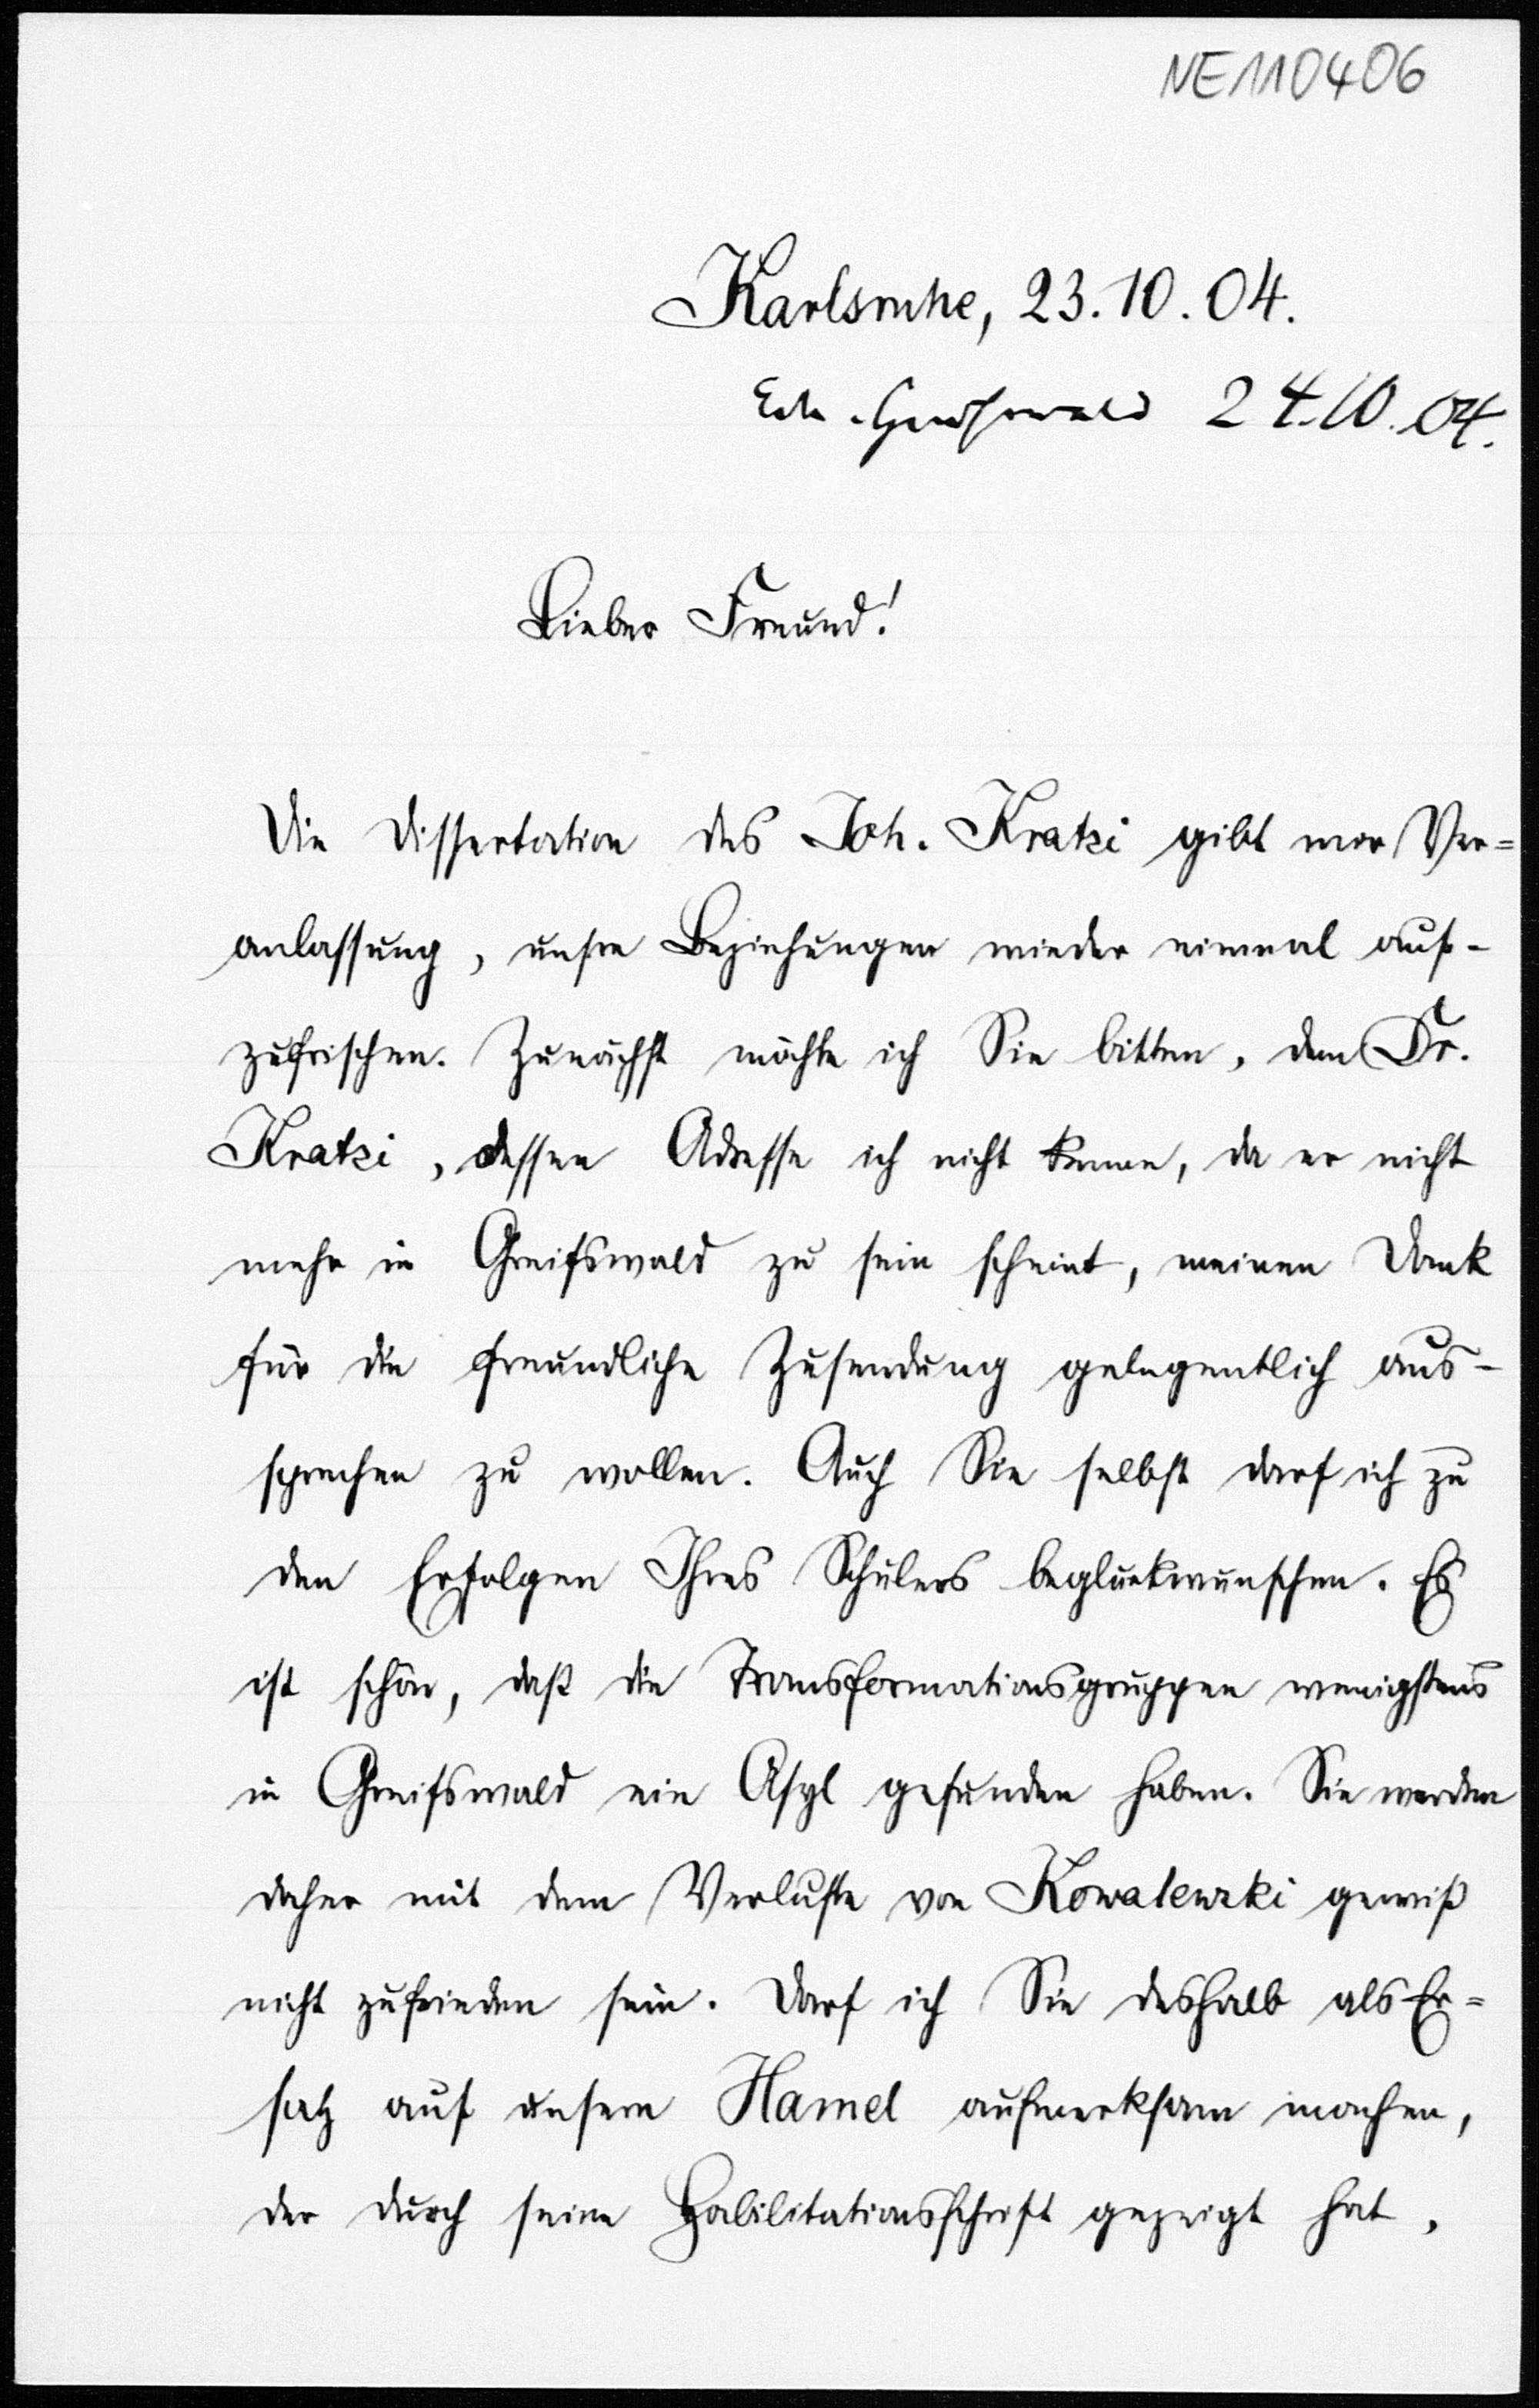 NE110406
Karlsruhe, 23.10.04.
Erh. Greifswald 24.10.04.
Lieber Freund!
Die Dissertation des Joh. Kratzi gibt mir Ver=
anlassung, unsre Beziehungen wieder einmal auf-
zufrischen. Zunächst möchte ich Sie bitten, dem Dr.
Kratzi, dessen Adresse ich nicht kenne, da er nicht
mehr in Greifswald zu sein scheint, meinen Dank
für die freundliche Zusendung gelegentlich aus-
sprechen zu wollen. Auch Sie selbst darf ich zu
den Erfolgen Ihres Schülers beglückwünschen. Es
ist schön, daß die Transformationsgruppen wenigstens
in Greifswald ein Asyl gefunden haben. Sie werden
daher mit dem Verluste von Kowalewski gewiß
nicht zufrieden sein. Darf ich Sie deshalb als Er=
satz auf unsern Hamel aufmerksam machen,
der durch seine Habilitationsschrift gezeigt hat,